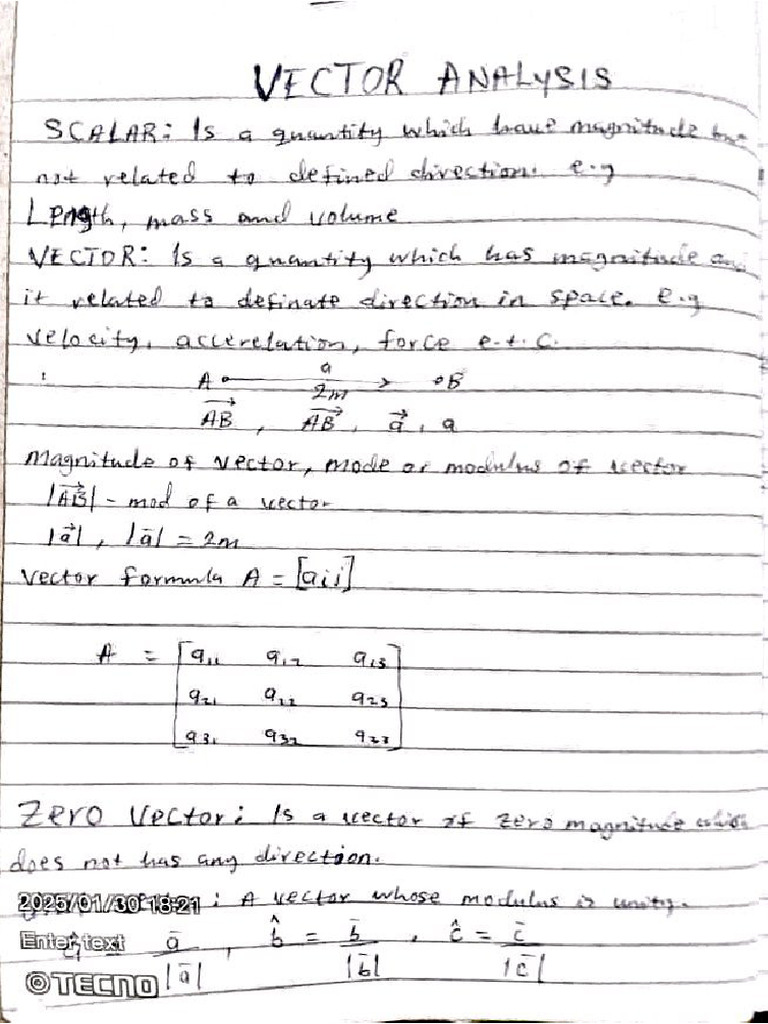 VECTOR ANALYSIS
SCALAR: Is a quantity which have magnitude
not related to defined direction. e.g
Length, mass and volume
VECTOR: Is a quantity which has magnitude
it related to definate direction in space. e.g
velocity, accerelation, force e.t.c.
a
A 2m B
AB, AB, a, a
Magnitude of vector, mode or modulus of vector
|AB| - mod of a vector
|a|, |a| = 2m
vector formula A = [aij]
A = [a11 a12 a13
a21 a22 a23
a31 a32 a33]
Zero Vector: Is a vector of zero magnitude which
does not has any direction.
2025/01/30 18:21 : A vector whose modulus is unity.
Enter text a̅ , b̂ = b̅ , ĉ = c̅
TECNO |a̅| |b̅| |c̅|